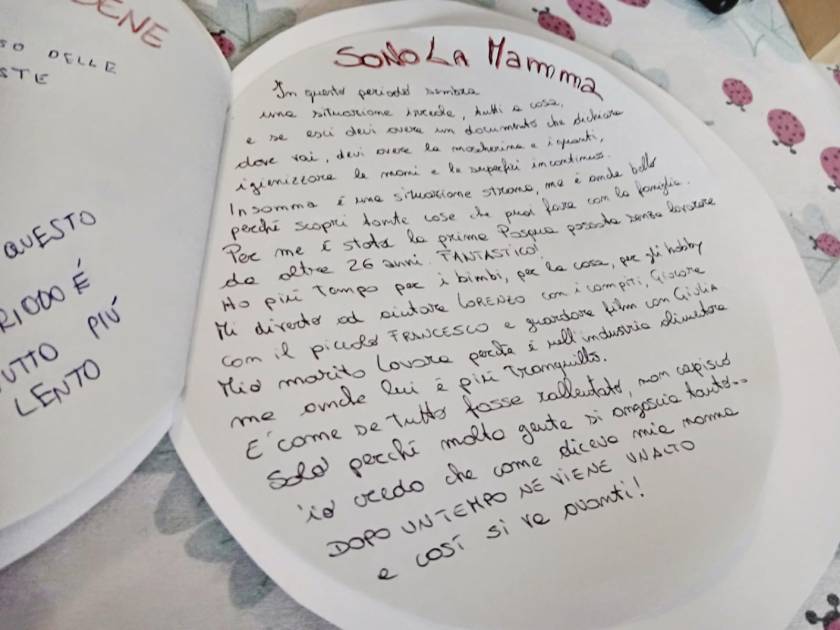 DENE
SO DELLE
STE
QUESTO
RIODO É
TUTTO PIÚ
LENTO
SONO LA MAMMA
In questo periodo sembra
una situazione irreale, tutti a casa,
e se esci devi avere un documento che dichiara
dove vai, devi avere la mascherina e i guanti,
igienizzare le mani e le superfici in continuo.
Insomma è una situazione strana, ma è anche bello
perché scopri tante cose che puoi fare con la famiglia.
Per me è stata la prima Pasqua passata senza lavorare
da oltre 26 anni. FANTASTICO!
Ho più Tempo per i bimbi, per la casa, per gli hobby
Mi diverto ad aiutare LORENZO con i compiti, Giocare
con il piccolo FRANCESCO e guardare film con GIULIA
Mio marito Lavora perché è nell'industria alimentare
ma anche lui è più Tranquillo.
E' come se Tutto fosse rallentato, non capisco
solo perché molta gente si angoscia tanto...
io credo che come diceva mia nonna
DOPO UN TEMPO NE VIENE UN ALTO
e COSÌ si va avanti!